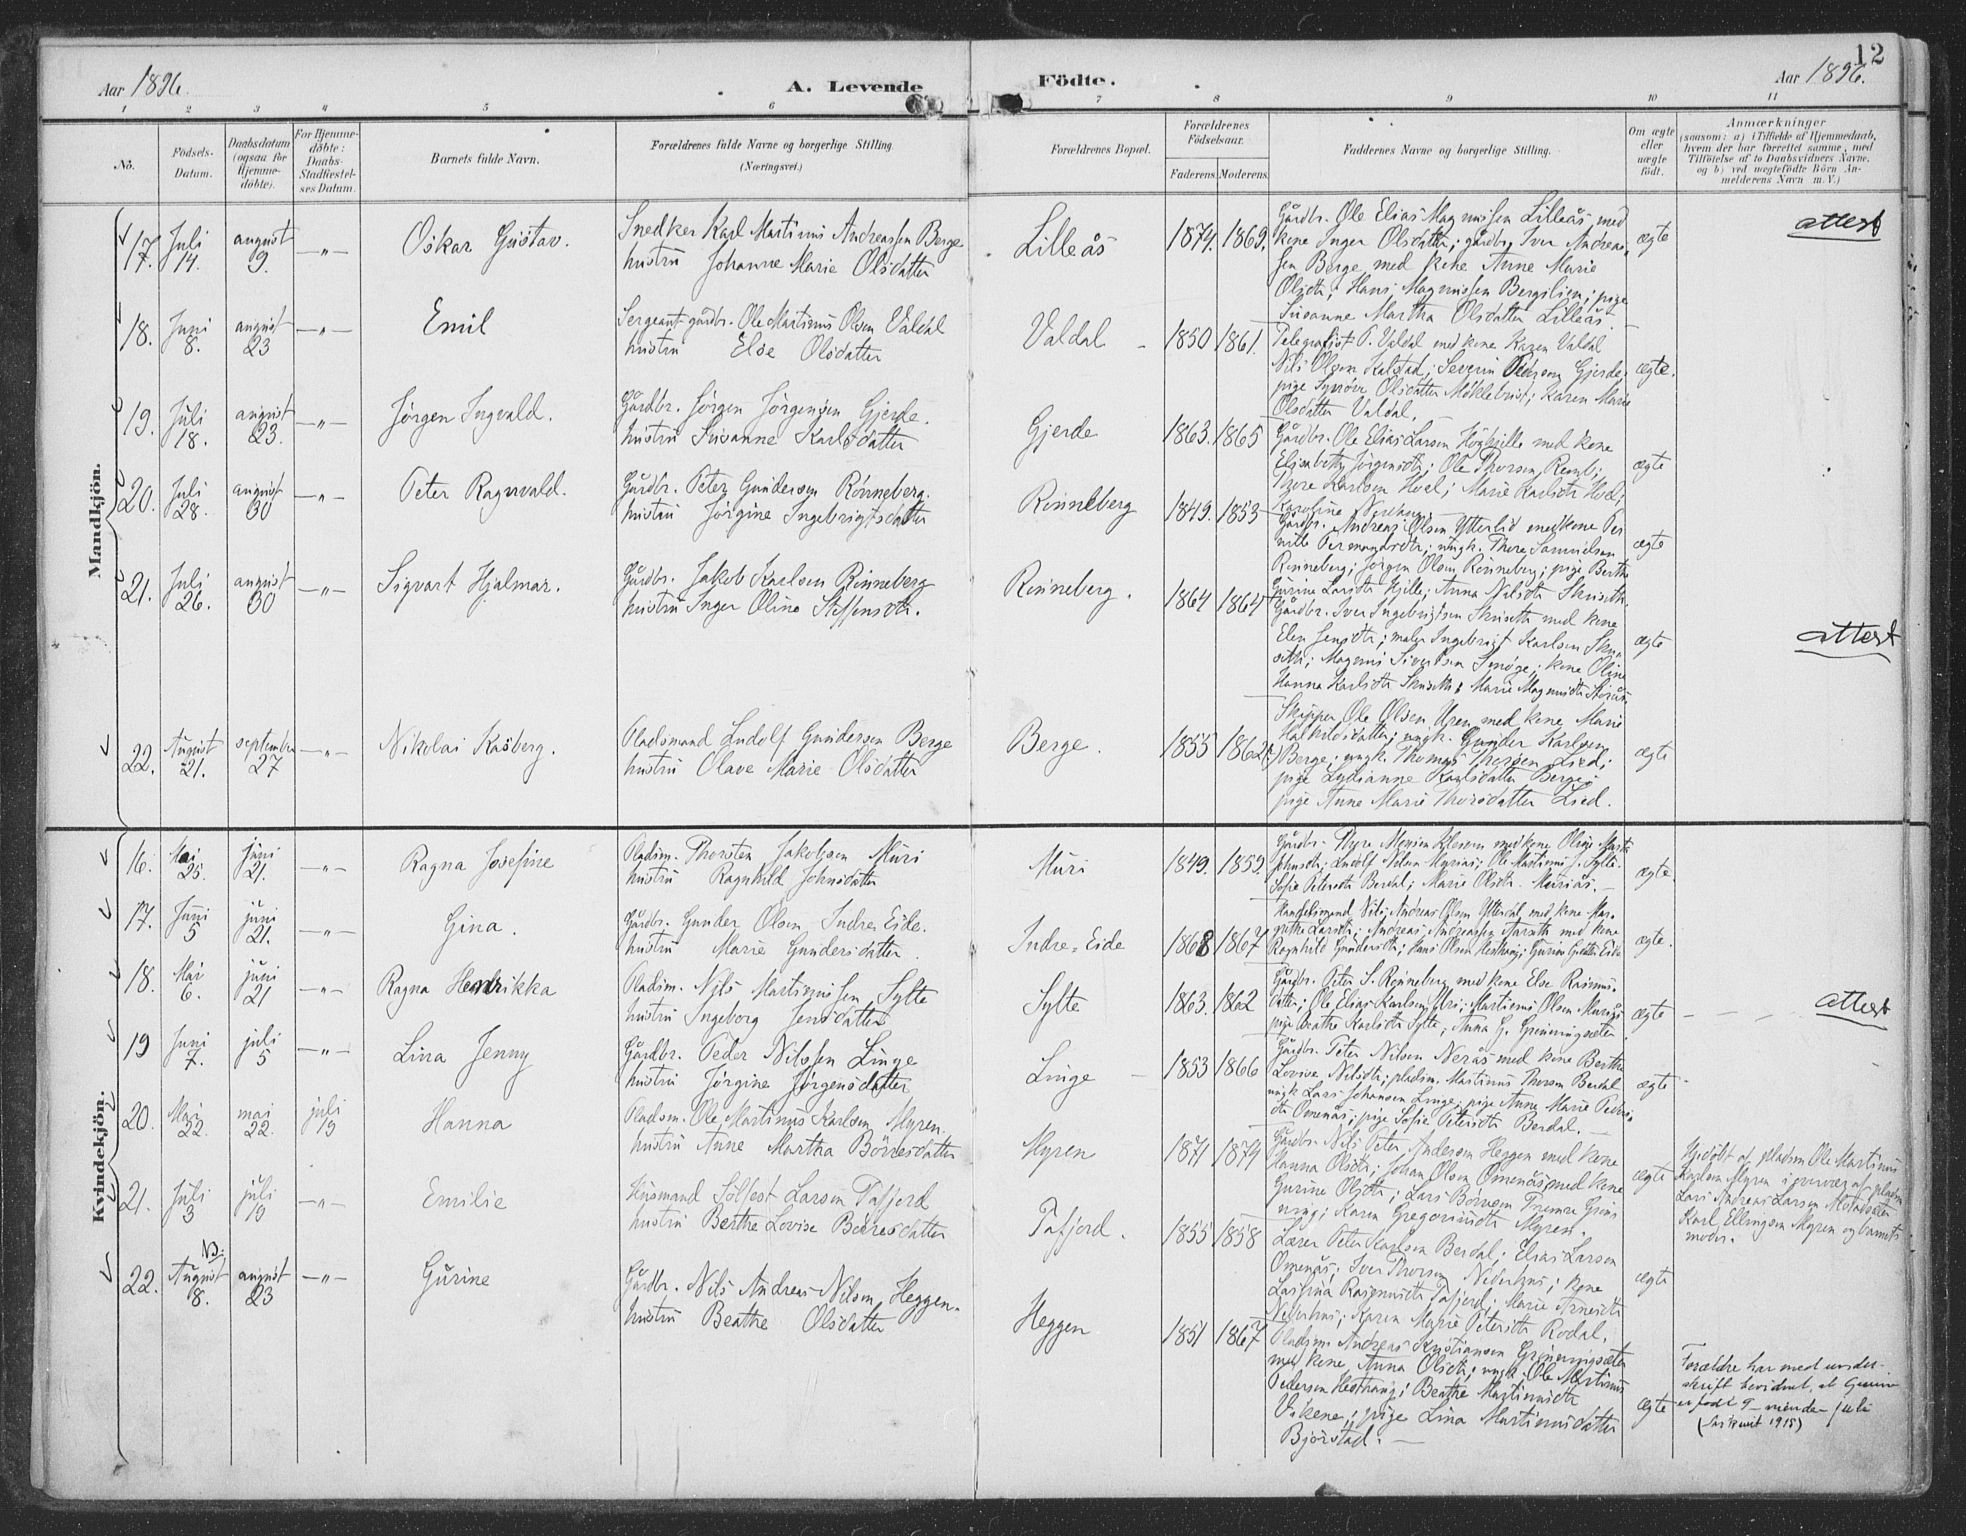 12
Aar 1896.
A. Levende
Födte.
Aar 1896.
1 2 3 4 5 6 7 8 9 10 11
No.
Födsels-
Datum.
Daabsdatum
(ogsaa för
Hjemme-
döbte).
For Hjemme-
döbte:
Daabs-
Stadfæstel-
ses Datum.
Barnets fulde Navn.
Forældrenes fulde Navne og borgerlige Stilling.
(Næringsvei.)
Forældrenes Bopæl.
Forældrenes
Födselsaar.
Faderens. Moderens.
Faddernes Navne og borgerlige Stilling.
Om ægte
eller
uægte
födt.
Anmærkninger
(saasom: a) i Tilfælde af Hjemmedaab,
hvem der har forrettet samme, med
Tilföielse af to Daabsvidners Navne,
og b) ved uægtefödte Börn An-
melderens Navn m. V.)
Mandkjön.
17. Juli 14. august 9. —"— Oskar Gustav.
Snedker Karl Martinus Andreassen Berge
hustru Johanne Marie Olsdatter
Lilleås 1874. 1869.
Gårdbr. Ole Elias Magnussen Lilleås med
kone Inger Olsdatter; gårdbr. Iver Andreas-
sen Berge med kone Anne Marie
Olsdtr; Hans Magnussen Bergilien; pige
Susanne Martha Olsdatter Lilleås.
ægte
attest
18. Juni 8. august 23 —"— Emil
Sergeant gårdbr. Ole Martinus Olsen Valdal
hustru Else Olsdatter
Valdal 1850 1861.
Telegrafist P. Valdal med kone Karen Valdal
Nils Olsen Kalstad; Severin Gjerde;
pige Synnöve Olsdatter Möklebust; Karen Marie
Olsdatter Valdal.
ægte.
19. Juli 18. august 23. —"— Jörgen Ingvald.
Gårdbr. Jörgen Jörgensen Gjerde.
hustru Susanne Karlsdatter
Gjerde 1863. 1865
Gårdbr. Ole Elias Larsen med kone
Elisabeth Jörgensdtr; Ole Thorsen
Karlsen Hoel; Marie Karlsdtr Hoel;
Karoline
ægte
20. Juli 28. august 30 —"— Peter Ragnvald.
Gårdbr. Peter Gundersen Rönneberg.
hustru Jörgine Ingebrigtsdatter
Rönneberg 1849. 1853
Gårdbr. Andreas Olsen Ytterlid med kone Per-
nille; ungk. Thore Samuelsen
Rönneberg; Jörgen Olsen Rönneberg; pige Berthe
Gurine Larsdtr Hjelle; Anna Nilsdtr
ægte
21. Juli 26. august 30 —"— Sigvart Hjalmar.
Gårdbr. Jakob Karlsen Rönneberg
hustru Inger Oline Steffensdtr.
Rönneberg. 1864 1864
Gårdbr. Iver Ingebrigtsen med kone
Elen Jensdtr; maler Ingebrigt Karlsen
Magnus Sivertsen; kone Oline
Hanna Karlsdtr; Marie Magnusdtr
ægte
attest
22. August 21. september 27 —"— Nikolai Kasberg.
Pladsmand Ludolf Gundersen Berge
hustru Olave Marie Olsdatter
Berge. 1855 1862
Skipper Ole Olsen Uren med kone Marie
ungk. Gunder Karlsen
Berge; ungk. Thomas Thorsen Lied;
pige Lydianne Karlsdatter Berge;
pige Anne Marie Thorsdatter Lied.
ægte
Kvindekjön.
16. Mai 25. juni 21. —"— Ragna Josefine
Pladsm. Thorsten Jakobsen Muri
hustru Ragnhild Johnsdatter
Muri 1849. 1859.
Sofie Petersdtr Berdal; Marie Olsdtr. Muriås.
ægte.
17. Juni 5 juni 21. —"— Gina.
Gårdbr. Gunder Olsen Indre Eide.
hustru Marie Gundersdatter.
Indre-Eide 1868 1867
Handelsmand Nils Andreas Olsen Ytterdal, med kone Mar-
grethe Larsdtr; Andreas Andreassen med kone
Ragnhild Gundersdtr; Hans Olsen Hesthaug; Gurine
ægte.
18. Mai 6. juni 21 —"— Ragna Hendrikka
Pladsm. Nils Martinussen Sylte
hustru Ingeborg Jensdatter
Sylte 1863. 1862
Gårdbr. Peter S. Rönneberg med kone Else Rasmus-
datter; Ole Elias Karlsen; Martinus Olsen
pige Beathe Karlsdtr Sylte; Anna G. Gröningsæter
ægte
attest
19 Juni 7. juli 5 —"— Lina Jenny
Gårdbr. Peder Nilssen Linge
hustru Jörgine Jörgensdatter
Linge 1853 1866
Gårdbr. Peter Nilsen Nerås med kone Berthe
Lovise Nilsdtr; pladsm. Martinus Thorsen Berdal
ungk Lars Johansen Linge; pige Anne Marie Peders-
dtr Omenås; pige Sofie Petersdtr Berdal.
ægte
20. Mai 22. mai 22. juli 19 Hanna
Pladsm. Ole Martinus Karlsen Myren.
hustru Anne Martha Börresdatter
Myren 1871 1874
Gårdbr. Nils Peter Andersen Heggen med kone
Hanna Olsdtr; Johan Olsen Omenås med kone
Gurine Olsdtr; Lars Börresen Fremre Grön-
ning; Karen Gregoriusdtr Myren.
ægte
Hjdöbt af pladsm Ole Martinus
Karlsen Myren i nærvær af pladsm
Lars Andreas Larsen
Karl Ellingsen Myren og barnets
moder.
21. Juli 3 juli 19 —"— Emilie
Husmand Sölfest Larsen Tafjord
hustru Berthe Lovise Berresdatter
Tafjord. 1855 1858
Lærer Peter Karlsen Berdal; Elias Larsen
Omenås; Iver Thorsen Nederhus; kone
Rasmusdtr Tafjord; Marie Arnesdtr
Nederhus; Karen Marie Petersdtr Rödal.
ægte
NB.
22. August 8. august 23 —"— Gurine
Gårdbr. Nils Andreas Nilsen Heggen.
hustru Beathe Olsdatter
Heggen 1851 1867
Pladsm. Andreas Kristiansen Gröningsæter
med kone Anna Olsdtr; ungk. Ole Martinus
Pedersen Hesthaug; Beathe Martinusdtr
Vikene; pige Lina Martinusdatter
Björstad.
ægte
Forældre har med under-
skrift bevidnet, at Gurine
er födt 9 - niende - juli
1915)